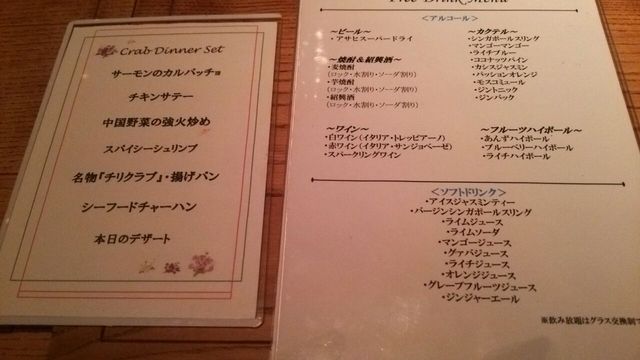 Crab Dinner Set
サーモンのカルパッチョ
チキンサテー
中国野菜の強火炒め
スパイシーシュリンプ
名物『チリクラブ』・揚げパン
シーフードチャーハン
本日のデザート
Free Drink Menu
<アルコール>
～ビール～
・アサヒスーパードライ
～焼酎&紹興酒～
・麦焼酎
(ロック・水割り・ソーダ割り)
・芋焼酎
(ロック・水割り・ソーダ割り)
・紹興酒
(ロック・水割り・ソーダ割り)
～ワイン～
・白ワイン(イタリア・トレッビアーノ)
・赤ワイン(イタリア・サンジョベーゼ)
・スパークリングワイン
～カクテル～
・シンガポールスリング
・マンゴーマンゴー
・ライチブルー
・ココナッツパイン
・カシスジャスミン
・パッションオレンジ
・モスコミュール
・ジントニック
・ジンバック
～フルーツハイボール～
・あんずハイボール
・ブルーベリーハイボール
・ライチハイボール
<ソフトドリンク>
・アイスジャスミンティー
・バージンシンガポールスリング
・ライムジュース
・ライムソーダ
・マンゴージュース
・グァバジュース
・ライチジュース
・オレンジジュース
・グレープフルーツジュース
・ジンジャーエール
※飲み放題はグラス交換制で